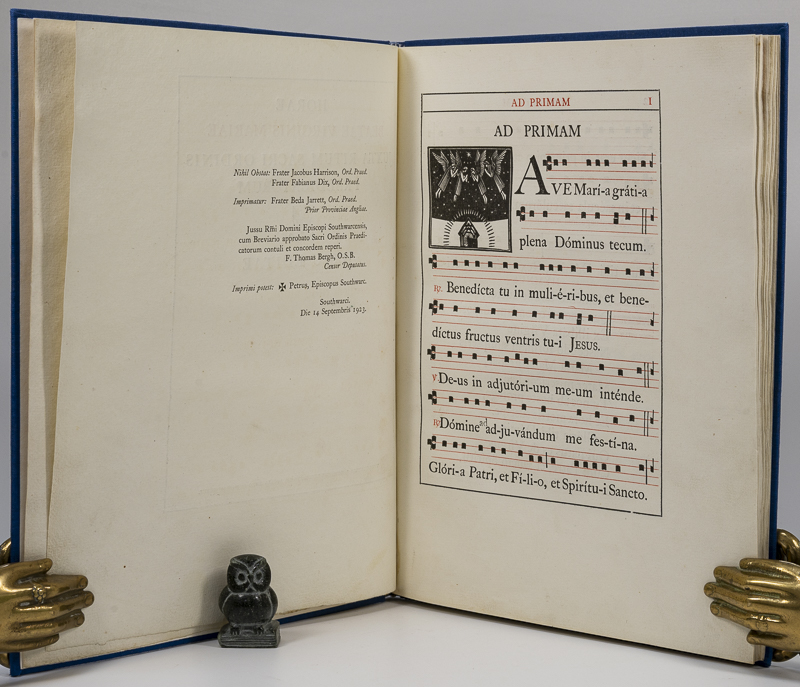 Nihil Obstat: Frater Jacobus Harrison, Ord. Praed.
Frater Fabianus Dix, Ord. Praed.
Imprimatur: Frater Beda Jarrett, Ord. Praed.
Prior Provinciae Angliae.
Jussu Rm̃i Domini Episcopi Southwarcensis,
cum Breviario approbato Sacri Ordinis Praedi-
catorum contuli et concordem reperi.
F. Thomas Bergh, O.S.B.
Censor Deputatus.
Imprimi potest: ✠ Petrus, Episcopus Southwarc.
Southwarci.
Die 14 Septembris 1923.
AD PRIMAM 1
AD PRIMAM
AVE Marí-a gráti-a
plena Dóminus tecum.
℟. Benedícta tu in muli-é-ri-bus, et bene-
díctus fructus ventris tu-i JESUS.
℣ De-us in adjutóri-um me-um inténde.
℟. Dómine ad ad-ju-vándum me fes-tí-na.
Glóri-a Patri, et Fí-li-o, et Spirítu-i Sancto.